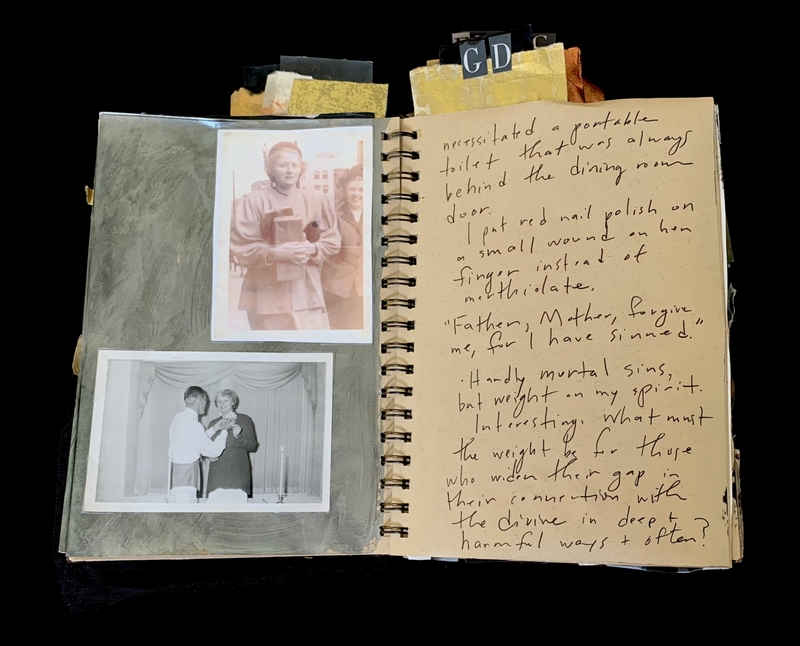 G D
necessitated a portable
toilet that was always
behind the dining room
door.
I put red nail polish on
a small wound on her
finger instead of
merthiolate.
"Father, Mother, forgive
me, for I have sinned."
Hardly mortal sins,
but weight on my spirit.
Interesting. What must
the weight be for those
who widen their gap in
their connection with
the divine in deep +
harmful ways + often?